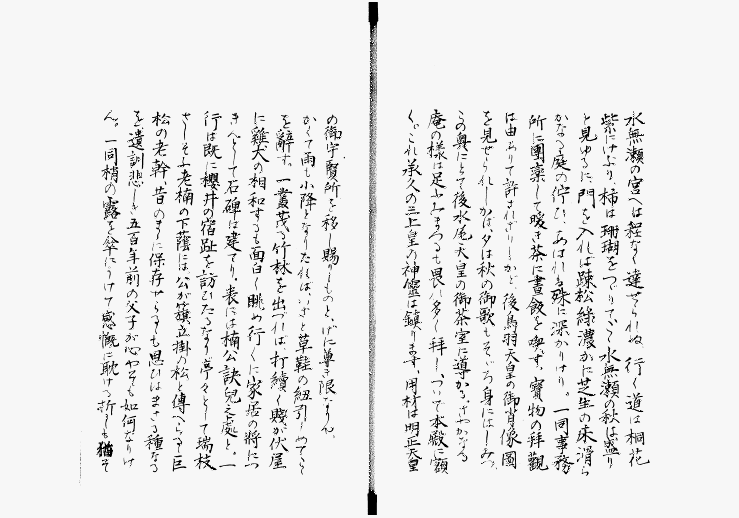 水無瀬の宮へは程なく達せられぬ 行く道は桐花
紫にけぶり 柿は珊瑚をつゞりて 水無瀬の秋は盛り
と見ゆるに、門を入れば疎松緑濃かに芝生の床滑ら
かなる庭の佇ひ、あはれも殊に深かりけり。一同事務
所に團欒して暖き茶に晝餉を喫す、寶物の拜觀
は由ありて許されざりしかど、後鳥羽天皇の御肖像圖
を見せられしかば、夕は秋の御歌もそゞろ身にはしみつ
この奥にとて後水尾天皇の御茶室に導かる、さゝやかなる
庵の様は足ふみまつるも畏れ多く拜しつ、ついで本殿に額
く。これ承久の三上皇の神靈は鎮ります、用材は明正天皇
の御宇賢所を移し賜りしものと、げに尊き限なりけん。
かくて雨も小降となりたれば、いざと草鞋の紐引しめてこゝ
を辭す、一叢茂る竹林を出づれば、打續く賤が伏屋
に雞犬の相和するも面白し眺め行くに家居の將につ
きんとして石碑は建てり、表には楠公訣兒之處と。一
行は既に櫻井の宿趾を訪ひたるなり 亭々として瑞枝
さしそふ老楠の下蔭には、公が旗立掛の松と傳へらるゝ巨
松の老幹、昔のまゝに保存せらるゝも思ひはまさる種なる
を 遺訓悲しき五百年前の父子が心やそも如何なりけ
ん。一同梢の露を傘にうけて感慨に耽ける折しも猶そ